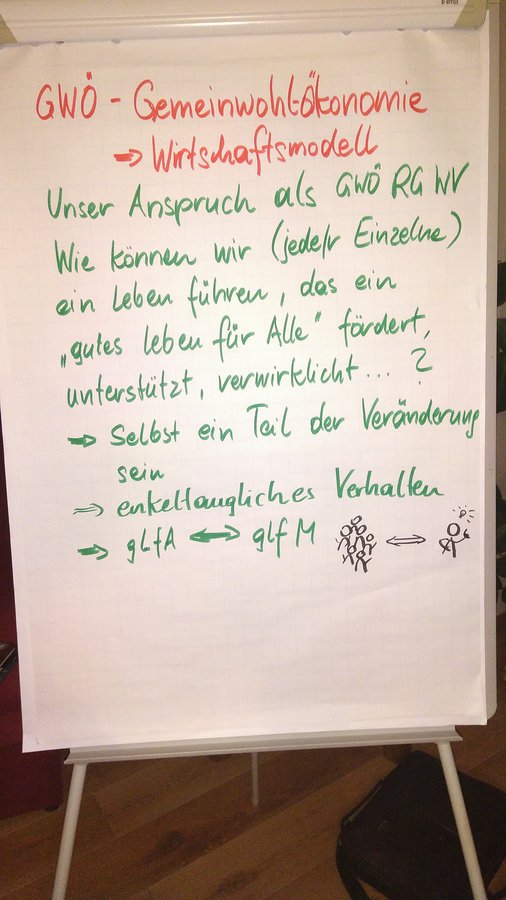 GWÖ - Gemeinwohl-Ökonomie
→ Wirtschaftsmodell
Unser Anspruch als GWÖ RG WV
Wie können wir (jede/r Einzelne)
ein Leben führen, das ein
„gutes Leben für Alle" fördert,
unterstützt, verwirklicht... ?
→ Selbst ein Teil der Veränderung
sein
⇒ enkeltaugliches Verhalten
→ gLfA ↔ glfM ⇔